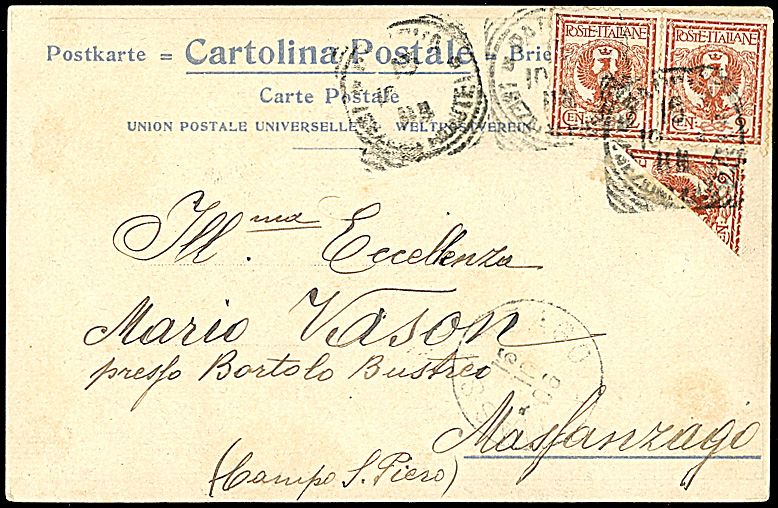 Postkarte = Cartolina Postale = Brie
Carte Postale
UNION POSTALE UNIVERSELLE WELTPOSTVEREIN
POSTE·ITALIANE
POSTE·ITALIANE
CEN. 2
CEN. 2
Ill.ma Eccellenza
Mario Vason
presso Bortolo Bustreo
Massanzago
(Campo S. Piero)